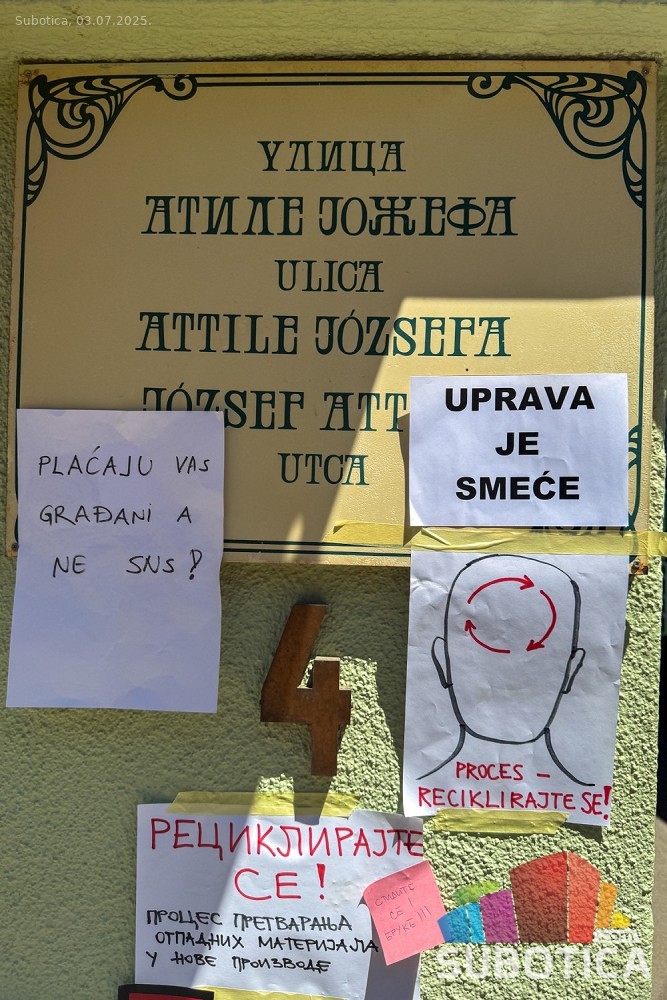 Subotica, 03.07.2025.
УЛИЦА
АТИЛЕ ЈОЖЕФА
ULICA
ATTILE JÓZSEFA
JÓZSEF ATT
UTCA
PLAĆAJU VAS
GRAĐANI A
NE SNS!
UPRAVA
JE
SMEĆE
4
PROCES -
RECIKLIRAJTE SE!
РЕЦИКЛИРАЈТЕ
СЕ!
ПРОЦЕС ПРЕТВАРАЊА
ОТПАДНИХ МАТЕРИЈАЛА
У НОВЕ ПРОИЗВОДЕ
СТИДИТЕ
СЕ!
БРУКЕ!!!
SUBOTICA
.com